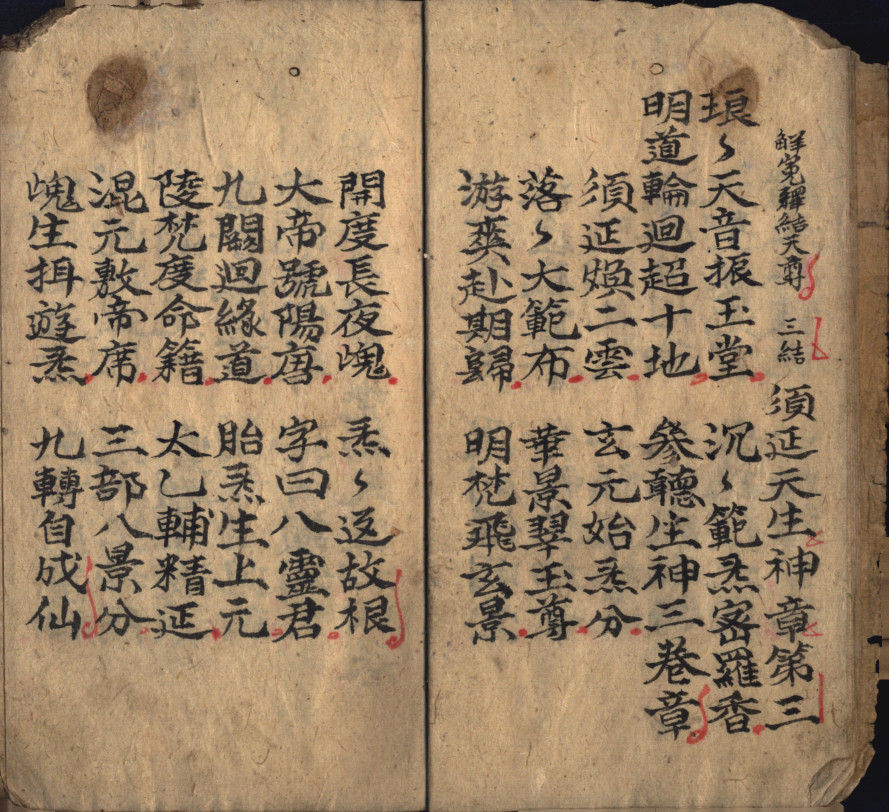 觧寃釋結天尊 三結
須延天生神章第三
琅〻天音振玉堂 沉〻範炁宻羅香
明道輪迴超十地 叅聽生神三卷章
須延煥二雲 玄元始炁分
落〻大範布 華景翠玉尊
游爽赴期歸 明梵飛玄景
開度長夜魄 炁〻返故根
大帝號陽唐 字曰八靈君
九關迴緣道 胎炁生上元
陵梵度命籍 太乙輔精延
混元敷帝席 三部八景分
魄生揖遊炁 九轉自成仙